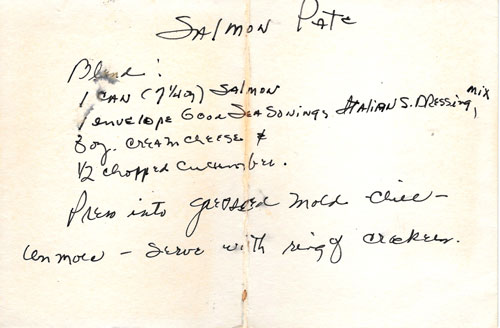 Salmon Pate
Blend:
1 can (7 1/4 oz) Salmon
1 envelope Good Seasonings Italian S. Dressing mix,
8 oz. cream cheese &
1/2 chopped cucumber.
Press into greased mold chill -
Unmold - serve with ring of crackers.